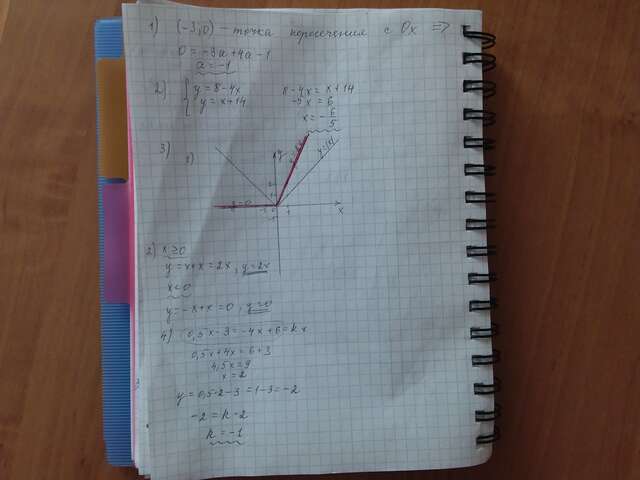 1) (-3;0) – точка пересечения с Ox =>
0 = -3a + 4a - 1
a = 1
2) { y = 8 - 4x
{ y = x + 14
8 - 4x = x + 14
-5x = 6
x = -6/5
3) 1)
y=0
x
2) x≥0
y = x + x = 2x, y = 2x
x<0
y = -x + x = 0 y = 0
4) 0,5x - 3 = -4x + 6 = kx
0,5x + 4x = 6 + 3
4,5x = 9
x = 2
y = 0,5·2 - 3 = 1 - 3 = -2
-2 = k·2
k = -1